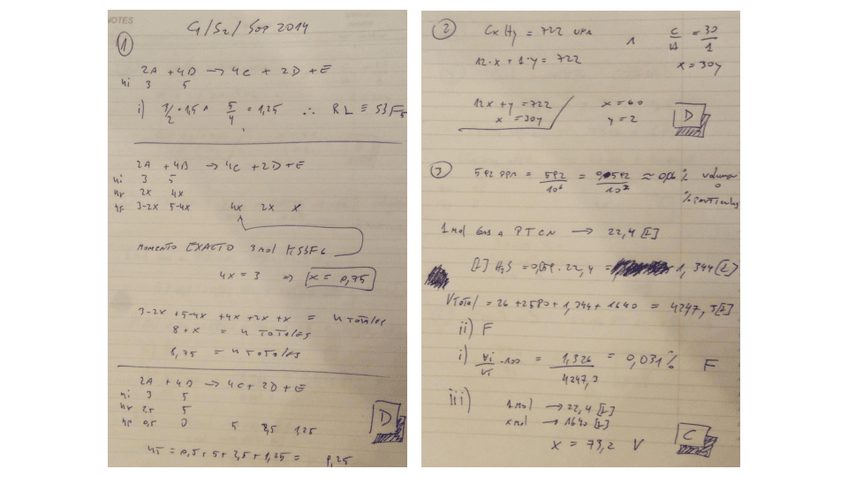 NOTES
G/S2/Sop 2014
1
2A + 4D → 4C + 2D + E
ni 3 5
i) 3/2 = 1,5 ^ 5/4 = 1,25 ∴ RL ≡ SBF5
2A + 4B → 4C + 2D + E
ni 3 5
nr 2x 4x
nf 3-2x 5-4x 4x 2x x
MOMENTO EXACTO 3 mol
4x = 3 ⇒ x = 0,75
3-2x + 5-4x + 4x + 2x + x = n TOTALES
8 + x = n TOTALES
8,75 = n TOTALES
2A + 4D → 4C + 2D + E
ni 3 5
nr 2,5 5
nf 0,5 0 5 2,5 1,25
nT = 0,5 + 5 + 2,5 + 1,25 = 9,25
D
2
CxHy = 722 UPA ^ C/H = 30/1
12·x + 1·y = 722 x = 30y
12x + y = 722 x = 60
x = 30y y = 2
D
3
592 PPM = 592/10^6 = 0,0592/10^2 ≈ 0,06 % volumen
o
% partículas
1 mol gas a PTCN → 22,4 [L]
[L] H2S = 0,06 · 22,4 = 1,344 [L]
VTotal = 26 + 2580 + 1,344 + 1640 = 4247,3 [L]
ii) F
i) Vi/VT · 100 = 1,326/4247,3 = 0,031 % F
iii) 1 mol → 22,4 [L]
x mol → 1640 [L]
x = 73,2 V
C